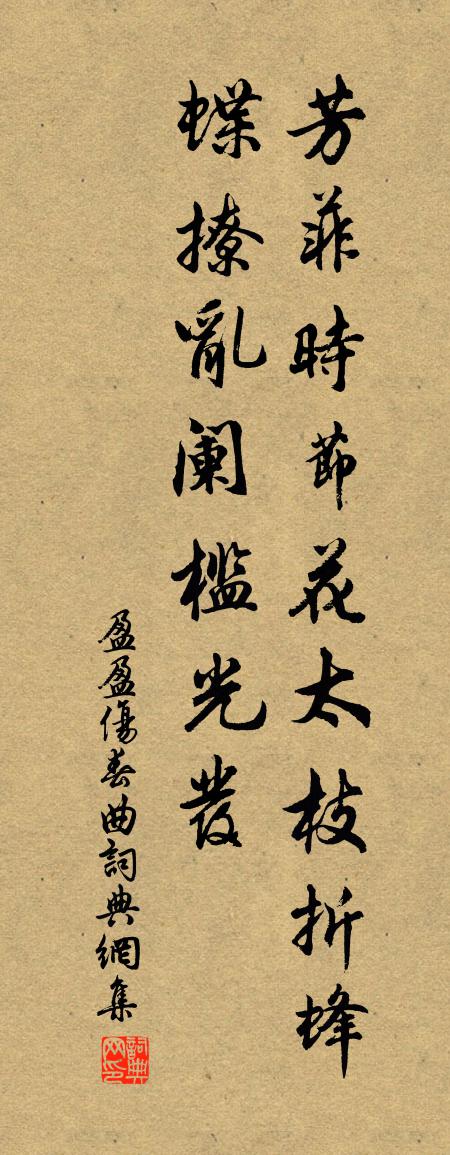 芳菲時節花太枝折蜂
蝶撩亂闌檻光發
盈盈傷春曲詞典網集
詞典网印